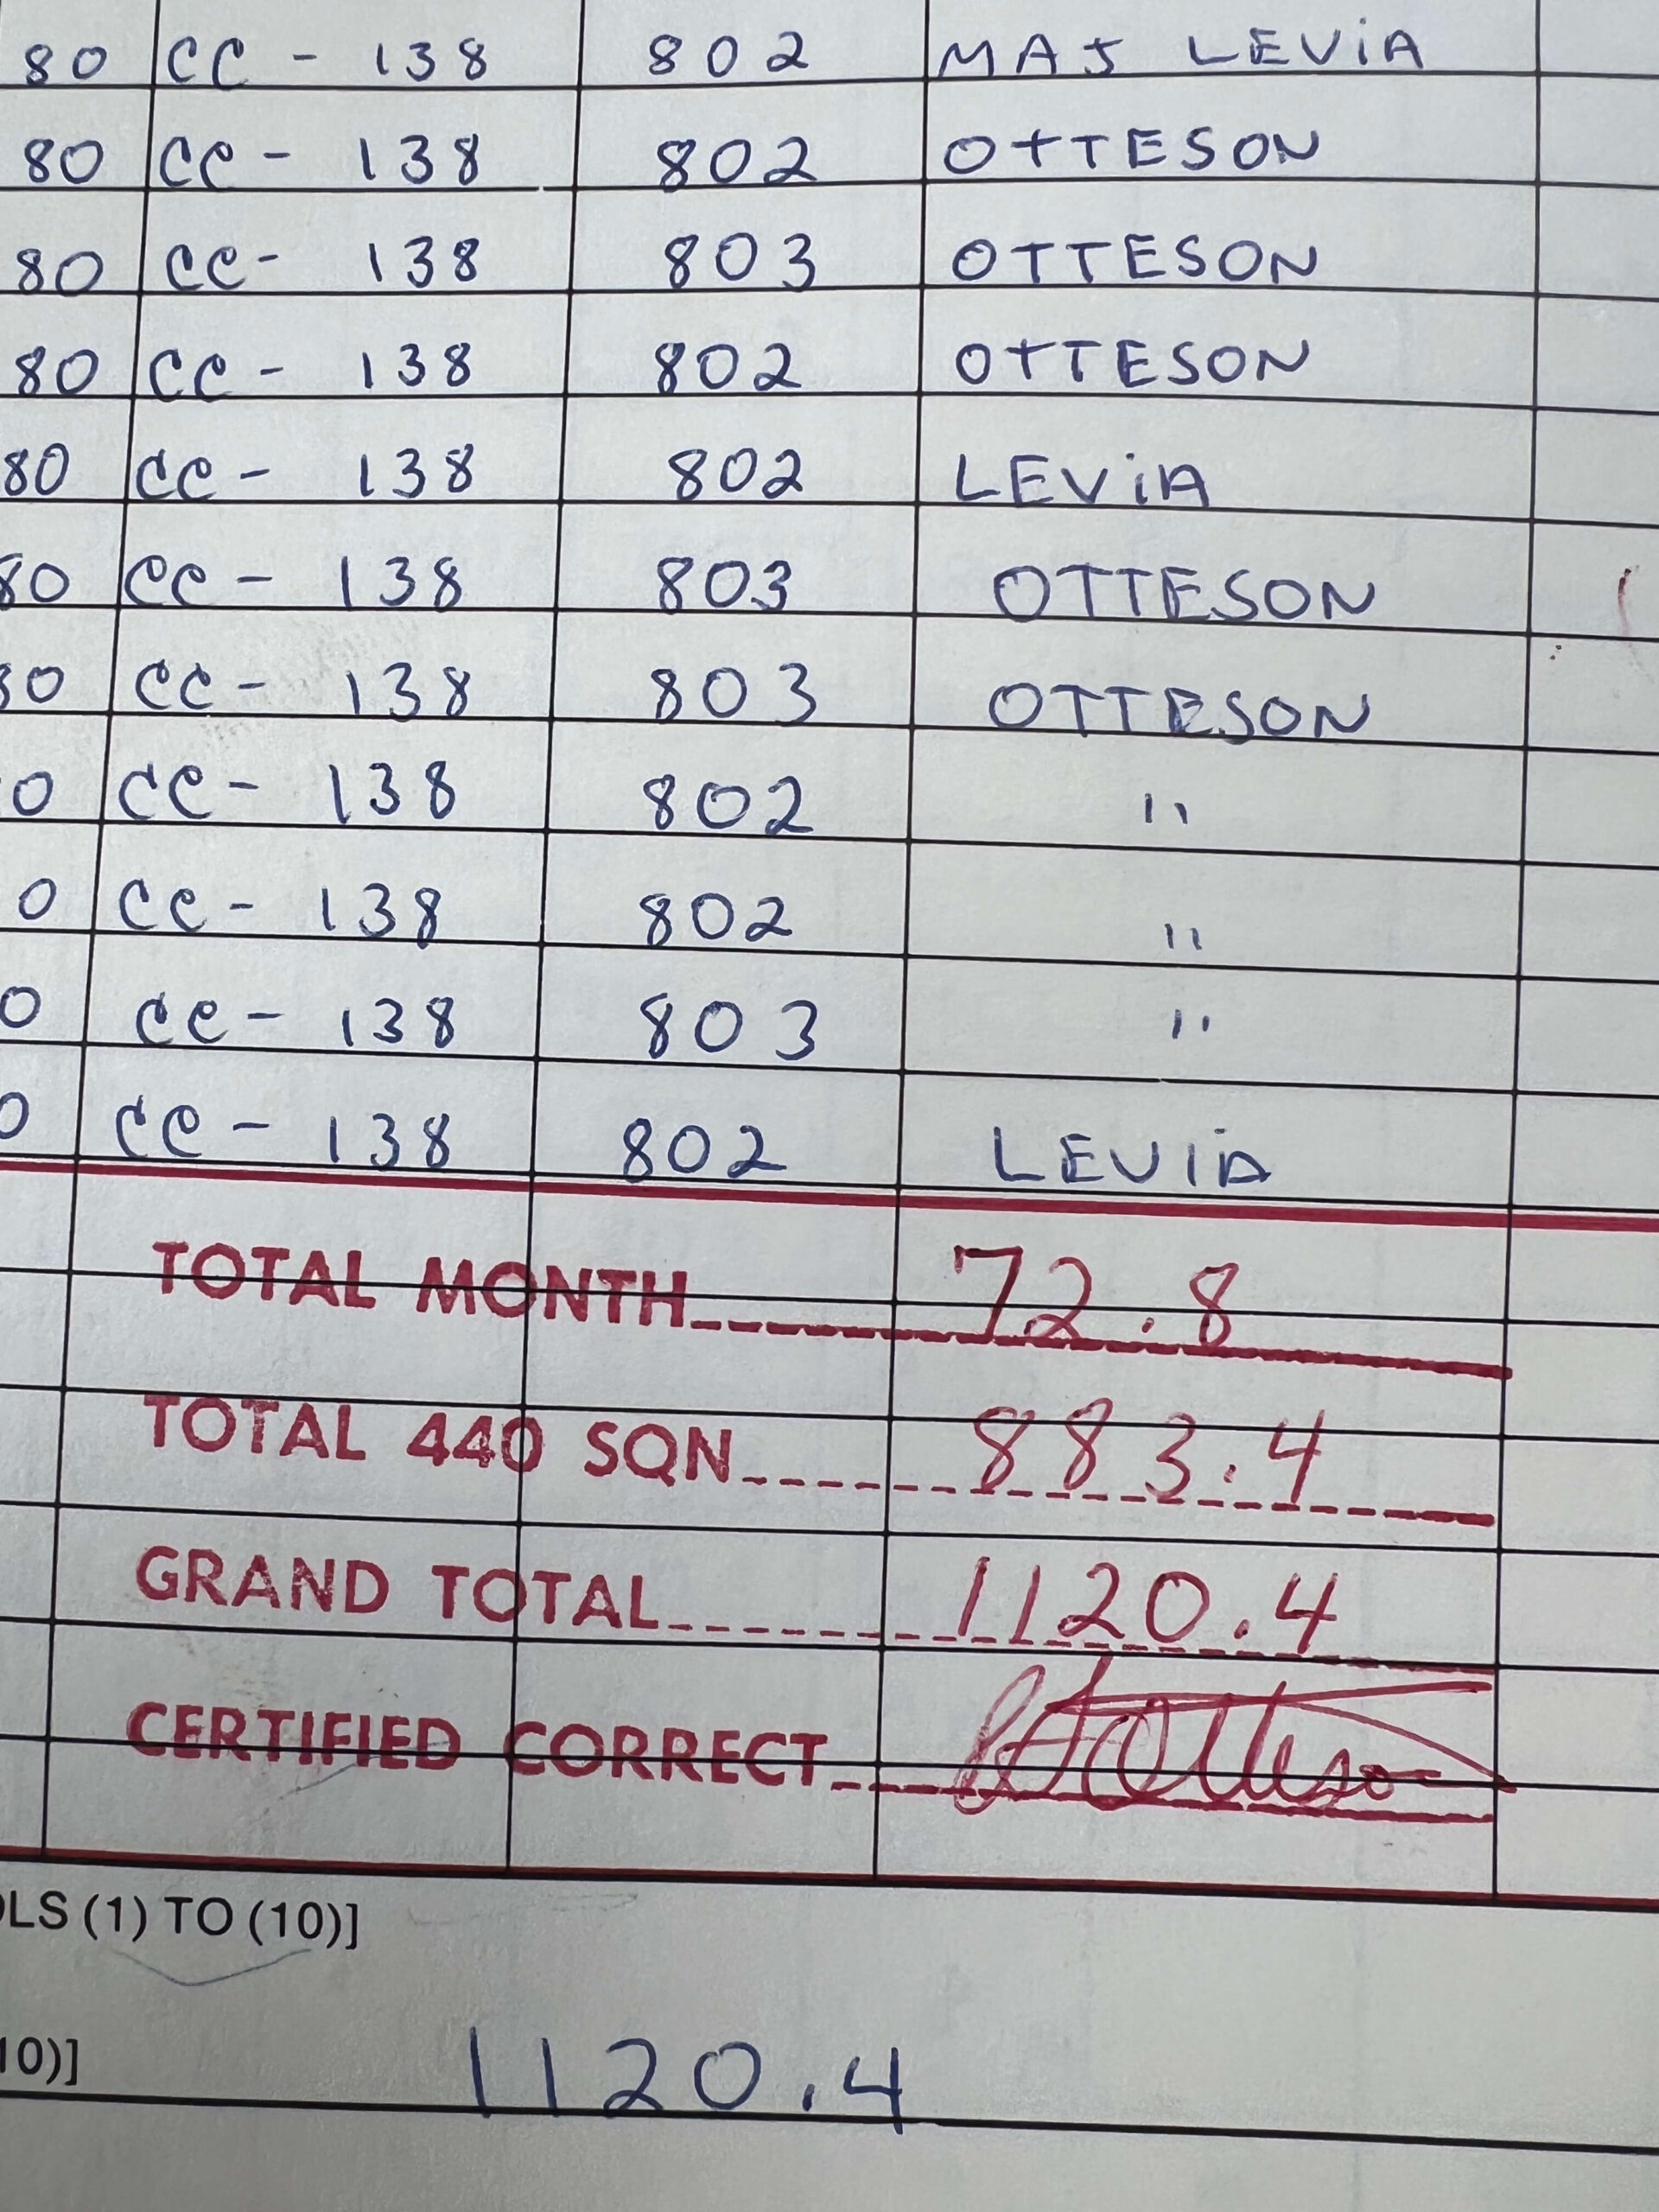 80 CC - 138 802 MAJ LEViA
80 CC - 138 802 OTTESON
80 CC - 138 803 OTTESON
80 CC - 138 802 OTTESON
80 CC - 138 802 LEViA
80 CC - 138 803 OTTESON
80 CC - 138 803 OTTESON
0 CC - 138 802 "
0 CC - 138 802 "
0 CC - 138 803 "
0 CC - 138 802 LEViA
TOTAL MONTH 72.8
TOTAL 440 SQN 883.4
GRAND TOTAL 1120.4
CERTIFIED CORRECT
OLS (1) TO (10)]
10)] 1120.4